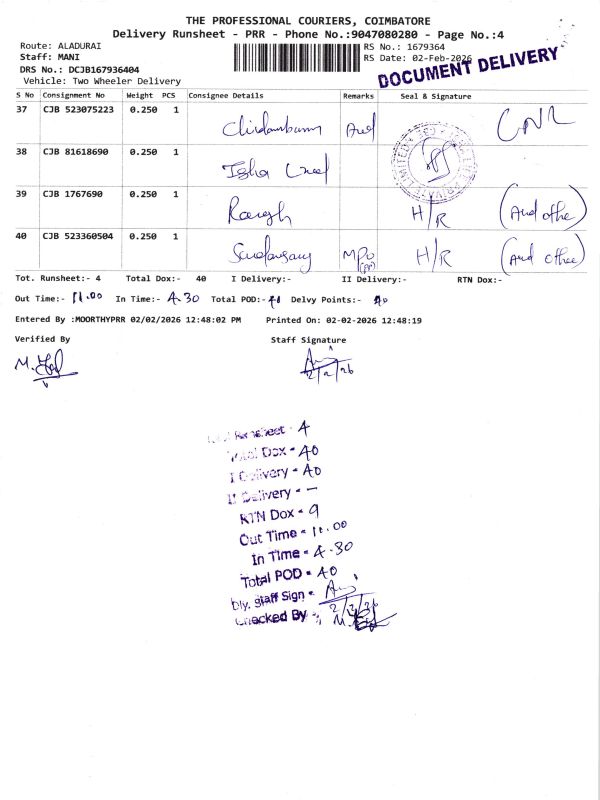 THE PROFESSIONAL COURIERS, COIMBATORE
Delivery Runsheet - PRR - Phone No.:9047080280 - Page No.:4
Route: ALADURAI
RS No.: 1679364
Staff: MANI
RS Date: 02-Feb-2026
DOCUMENT DELIVERY
DRS No.: DCJB167936404
Vehicle: Two Wheeler Delivery
S No Consignment No Weight PCS Consignee Details Remarks Seal & Signature
37 CJB 523075223 0.250 1
38 CJB 81618690 0.250 1
39 CJB 1767690 0.250 1 H/R
40 CJB 523360504 0.250 1 H/R
Tot. Runsheet:- 4 Total Dox:- 40 I Delivery:- II Delivery:- RTN Dox:-
Out Time:- 11.00 In Time:- 4.30 Total POD:- Delvy Points:-
Entered By :MOORTHYPRR 02/02/2026 12:48:02 PM Printed On: 02-02-2026 12:48:19
Verified By Staff Signature
2/2/26
Runsheet - 4
Total Dox - 40
I Delivery - 40
II Delivery - —
RTN Dox - 9
Out Time - 11.00
In Time - 4.30
Total POD - 40
Dly. Staff Sign -
Checked By -